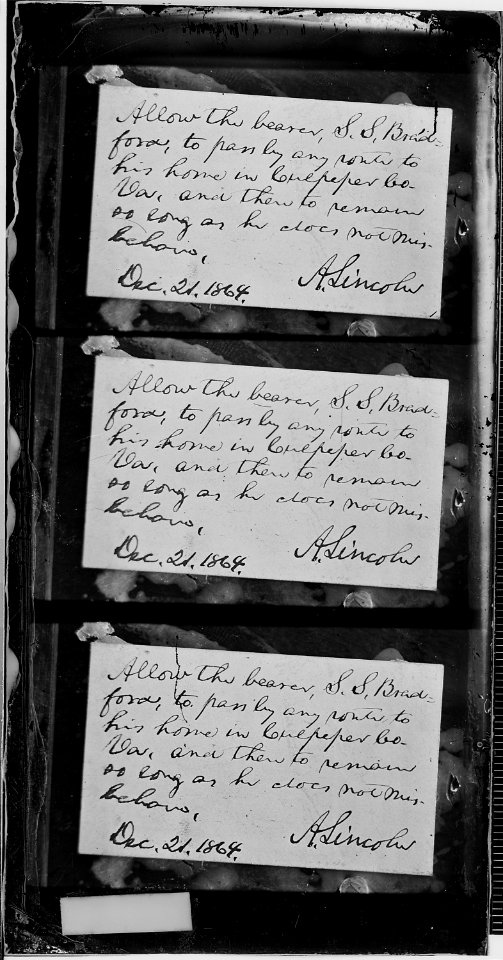 Allow the bearer, S. S. Brad=
ford, to pass by any route to
his home in Culpeper Co.
Va, and then to remain
so long as he does not mis-
behave,
A. Lincoln
Dec. 21. 1864.
Allow the bearer, S. S. Brad=
ford, to pass by any route to
his home in Culpeper Co.
Va, and then to remain
so long as he does not mis-
behave,
A. Lincoln
Dec. 21. 1864.
Allow the bearer, S. S. Brad=
ford, to pass by any route to
his home in Culpeper Co.
Va, and then to remain
so long as he does not mis-
behave,
A. Lincoln
Dec. 21. 1864.